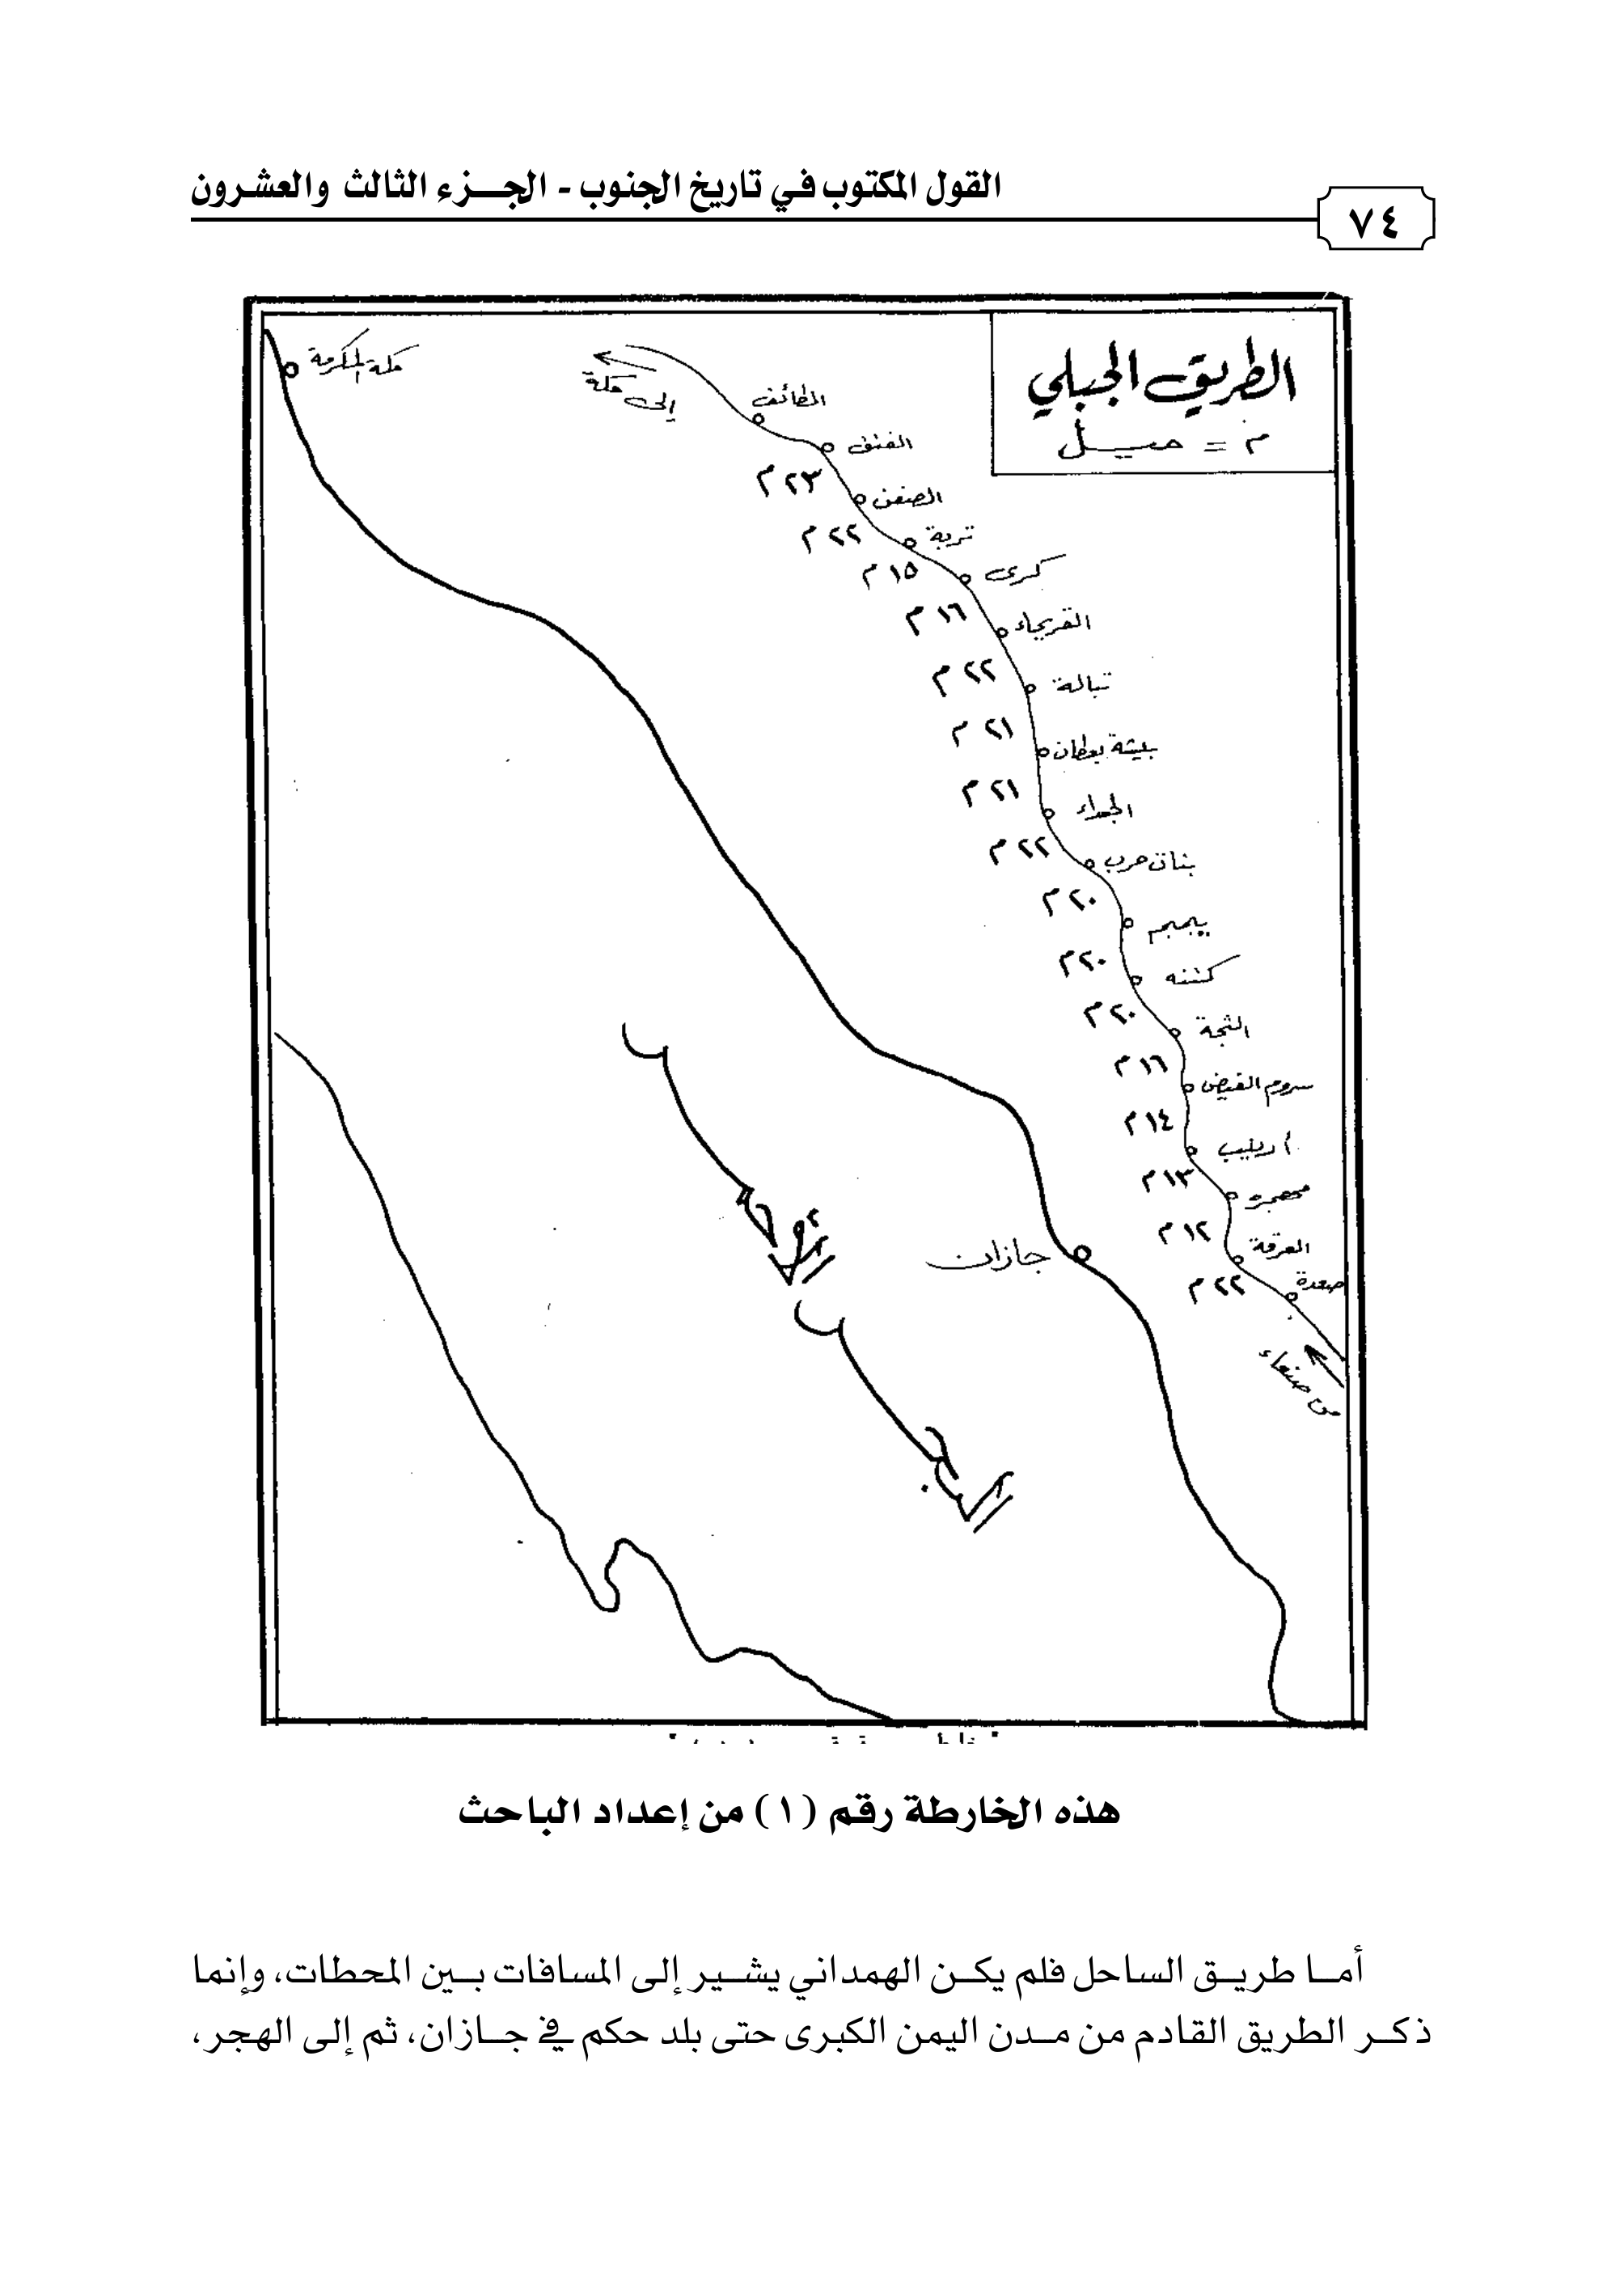 القول المكتوب في تاريخ الجنوب - الجـــزء الثالث والعشرون
٧٤
الطريق الجبلي
م = ميل
مكة المكرمة
إلى مكة
الطائف
الفتق
٢٣ م
الصفن
٢٢ م
تربة
١٥ م
كرى
١٦ م
القريحاء
٢٢ م
تبالة
٢١ م
بيشة بعطان
٢١ م
الجداء
٢٢ م
بنات حرب
٢٠ م
يبمبم
٢٠ م
كتنه
٢٠ م
الثجة
١٦ م
سروم الفيض
١٤ م
أرينب
١٣ م
١٢ م
العرقة
٢٢ م
صعدة
من صنعاء
جازان
البحر الأحمر
هذه الخارطة رقم (١) من إعداد الباحث
أمـا طريـق الساحل فلم يكـن الهمداني يشـير إلى المسافات بـين المحطات، وإنما
ذكـر الطريق القادم من مـدن اليمن الكبرى حتى بلد حكم في جـازان، ثم إلى الهجر،